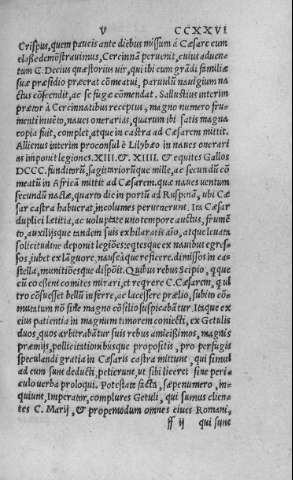 V CCXXVI
Crispus, quem paucis ante diebus missum à Cæsare cum
classe demonstrauimus, Cercinnã peruenit, cuius aduen-
tum C. Decius quæstorius uir, qui ibi cum grãdi familiæ
suæ præsidio præerat cõmeatui, paruulũ nauigium na-
ctus cõscendit, ac se fugæ cõmendat. Sallustius interim
prætor à Cercinnatibus receptus, magno numero fru-
menti inuẽto, naues onerarias, quarum ibi satis magna
copia fuit, complet, atque in castra ad Cæsarem mittit.
Allienus interim proconsul è Lilybæo in naues onerari
as imponit legiones. XIII. & XIIII. & equites Gallos
DCCC. funditorũ, sagittariorũque mille, ac secundũ cõ
meatũ in Africã mittit ad Cæsarem. quæ naues uentum
secundũ nactæ, quarto die in portũ ad Ruspinã, ubi Cæ
sar castra habuerat, incolumes peruenerunt. Ita Cæsar
duplici lætitia, ac uoluptate uno tempore auctus, frumẽ
to, auxilijsque tandem suis exhilaratis aĩo, atque leuata
solicitudine deponit. legiões, eqtesque ex nauibus egres-
sos, iubet ex lãguore, nauseáque reficere. dimissos in ca-
stella, munitiõesque dispõit. Quibus rebus Scipio, q quæ
cũ eo essent comites mirari, et reqrere C. Cæsarem, q ul
tro cõsuesset bellũ inferre, ac lacessere prælio, subito cõ-
mutatum nõ sine magno cõsilio suspicabãtur. Itaque ex
eius patientia in magnum timorem coniecti, ex Getulis
duos, quos arbitrabãtur suis rebus amicissimos, magnis
præmijs, pollicitationibusque propositis, pro perfugis
speculandi gratia in Cæsaris castra mittunt. qui simul
ad eum sunt deducti, petierunt, ut sibi liceret sine peri-
culo uerba proloqui. Potestate facta, sæpenumero, in-
quiunt, Imperator, complures Getuli, qui sumus clien-
tes C. Marij, & propemodum omnes ciues Romani,
ff ij qui sunt